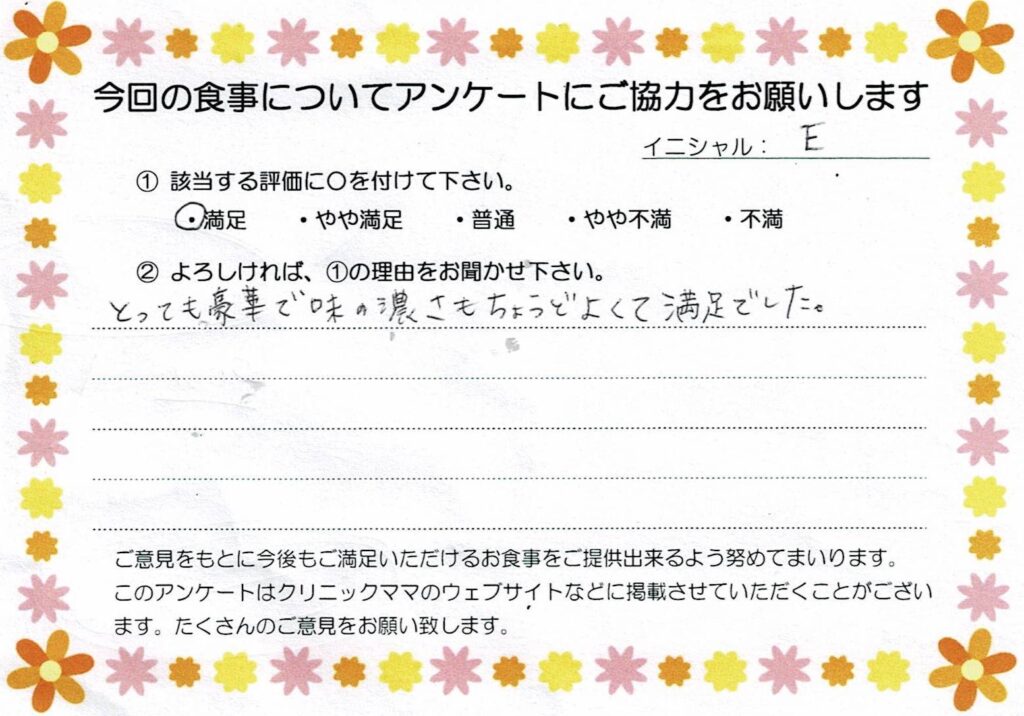 今回の食事についてアンケートにご協力をお願いします
イニシャル： E
① 該当する評価に〇を付けて下さい。
・満足 ・やや満足 ・普通 ・やや不満 ・不満
② よろしければ、①の理由をお聞かせ下さい。
とっても豪華で味の濃さもちょうどよくて満足でした。
ご意見をもとに今後もご満足いただけるお食事をご提供出来るよう努めてまいります。
このアンケートはクリニックママのウェブサイトなどに掲載させていただくことがござい
ます。たくさんのご意見をお願い致します。